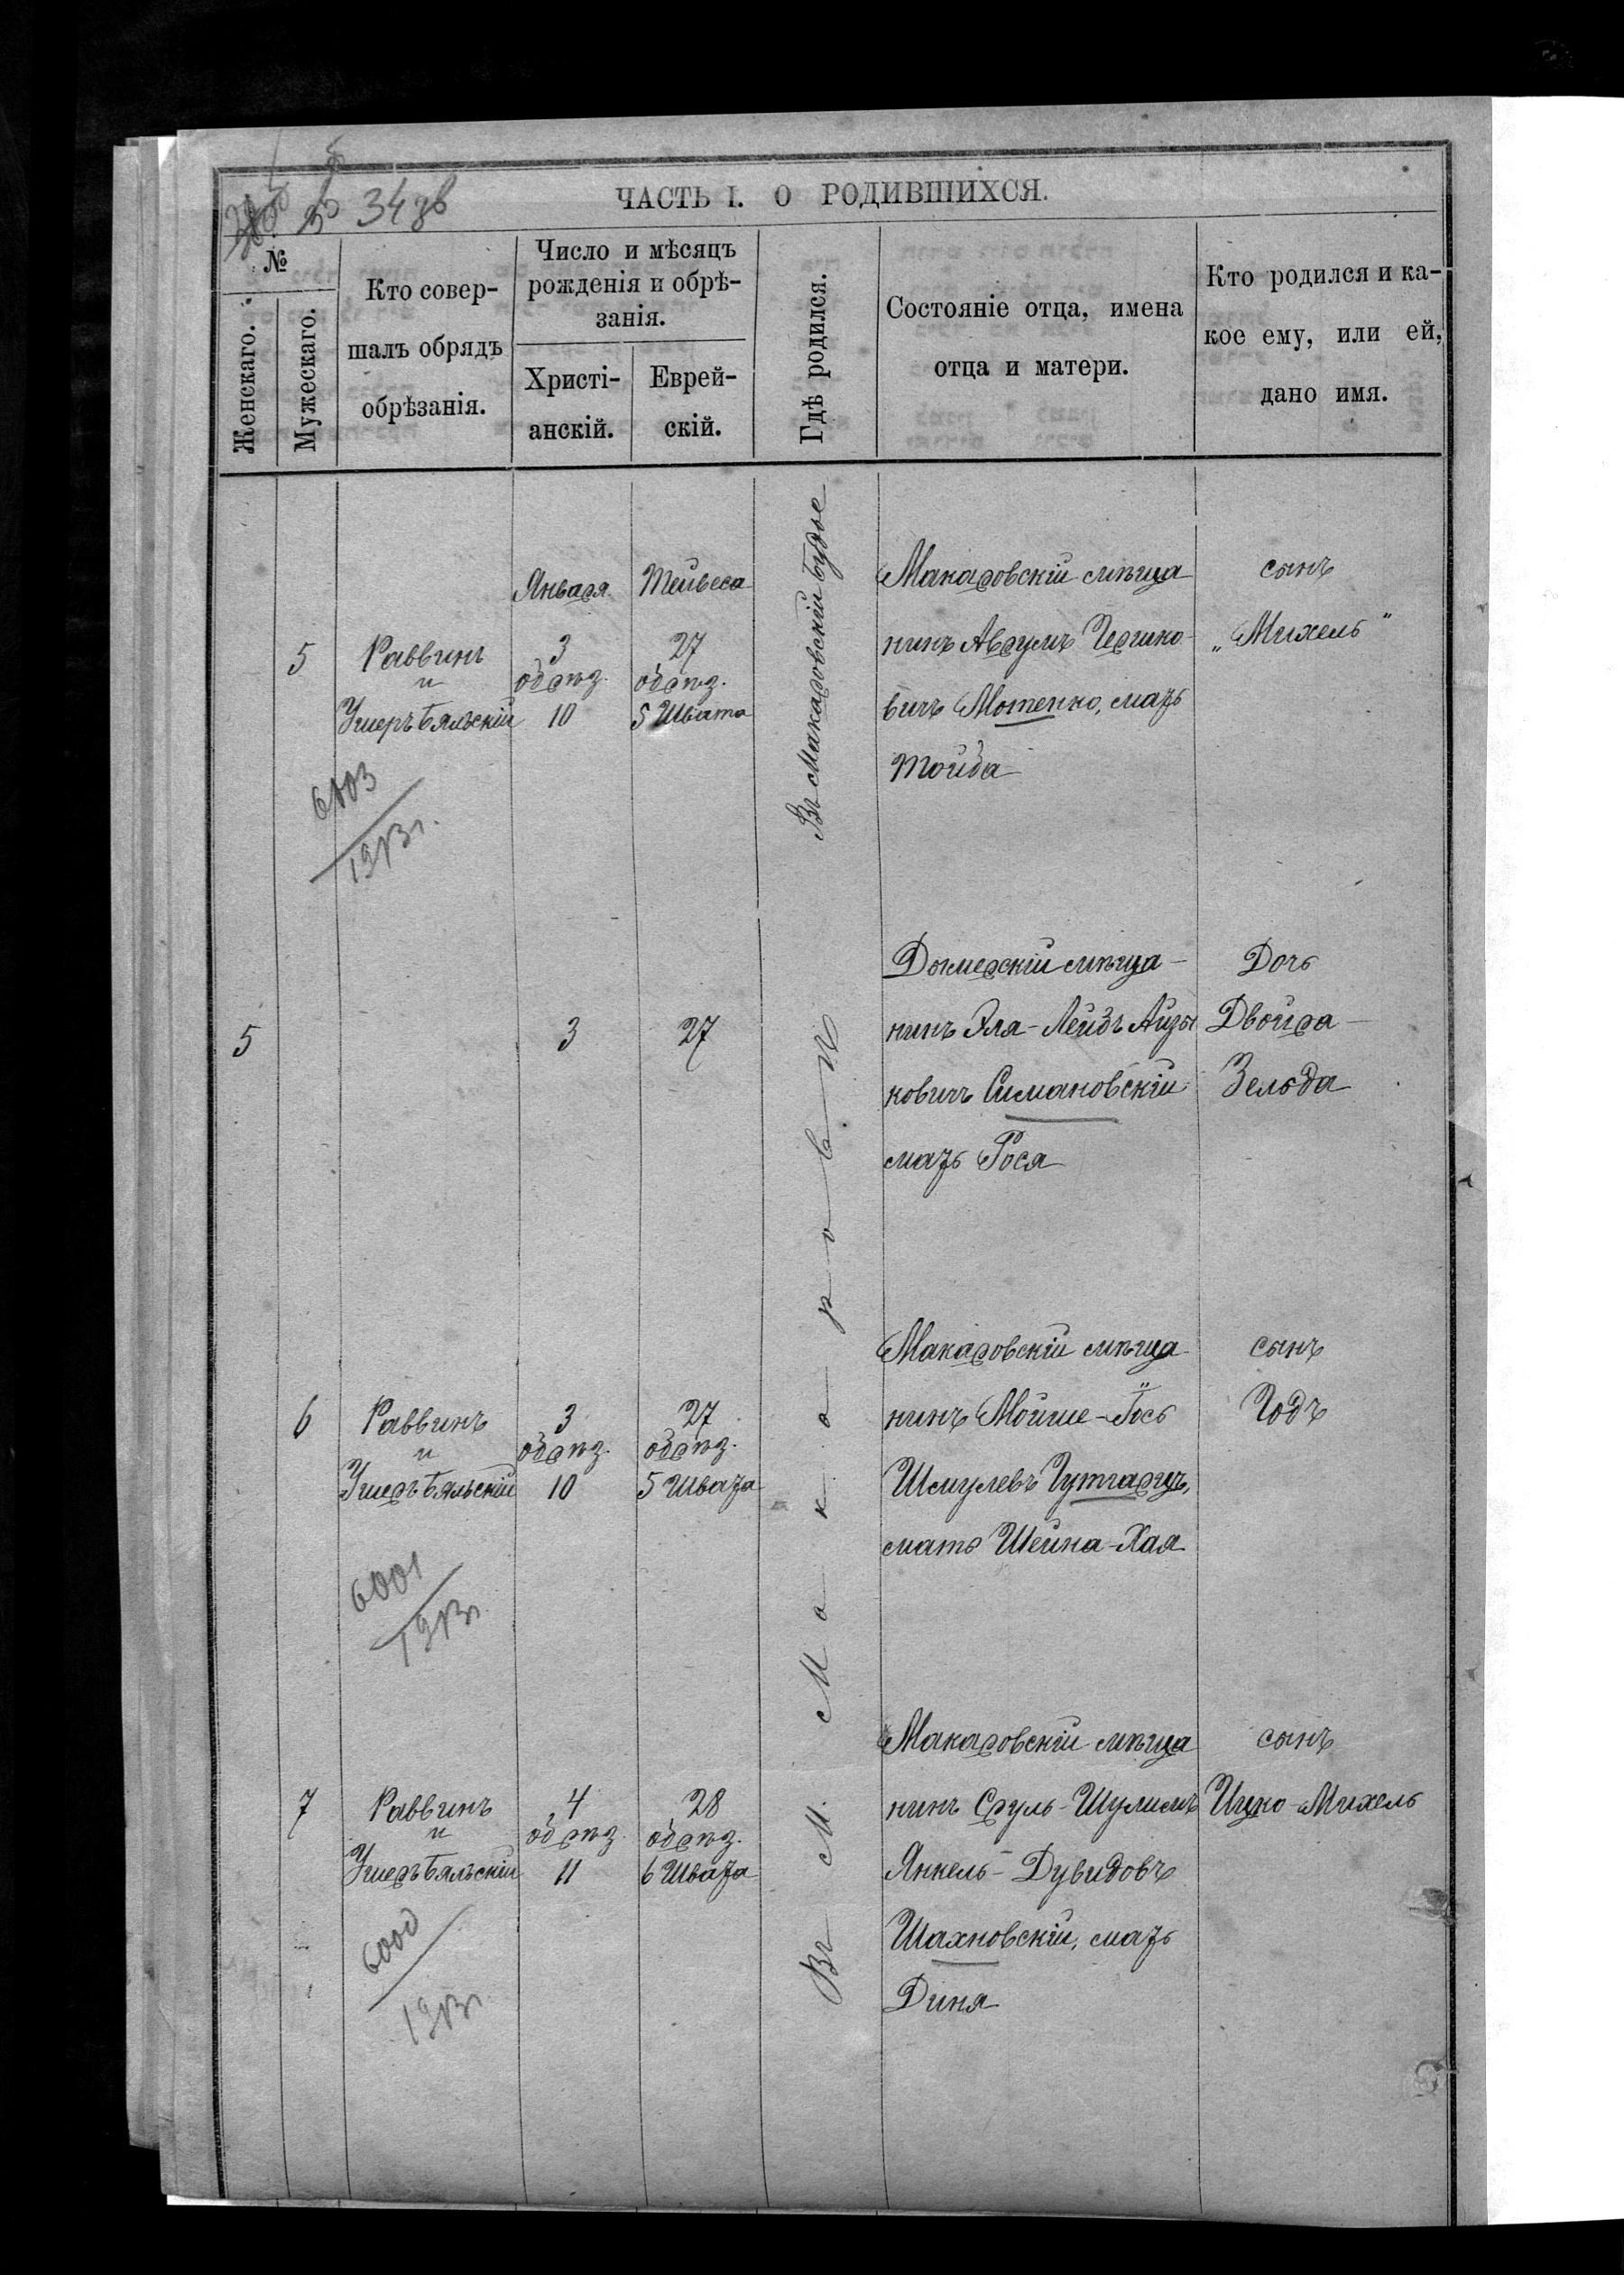 34 дв
ЧАСТЬ I. О РОДИВШИХСЯ.
№
Женскаго.
Мужескаго.
Кто совер-
шалъ обрядъ
обрѣзанія.
Число и мѣсяцъ
рожденія и обрѣ-
занія.
Христі-
анскій.
Еврей-
скій.
Гдѣ родился.
Состояніе отца, имена
отца и матери.
Кто родился и ка-
кое ему, или ей,
дано имя.
5
Раввинъ
и
Ушеръ Бяльскій
Января
3
обрѣз.
10
Тейвеса
27
обрѣз.
5 Швата
Въ Макаровскій Будье
Макаровскій мѣща
нинъ Аврумъ
вичъ Мотенко, мать
Тойба
сынъ
„Михель"
6003
1913 г.
5
3
27
мѣща-
нинъ Эля-Лейбъ Айзи
ковичъ Симановскій
мать Рося
Дочь
Двойра-
Зельда
6
Раввинъ
и
Ушеръ Бяльскій
3
обрѣз.
10
27
обрѣз.
5 Швата
Въ м. Макаровѣ
Макаровскій мѣща
нинъ Мойше-Іось
Шмулевъ Гутгарцъ,
мать Шейна-Хая
сынъ
Годъ
6001
1913 г.
7
Раввинъ
и
Ушеръ Бяльскій
4
обрѣз.
11
28
обрѣз.
6 Швата
Макаровскій мѣща
нинъ Сруль-Шулимъ
Янкель-Дувидовъ
Шахновскій, мать
Диня
сынъ
Ицко-Михель
6000
1913 г.